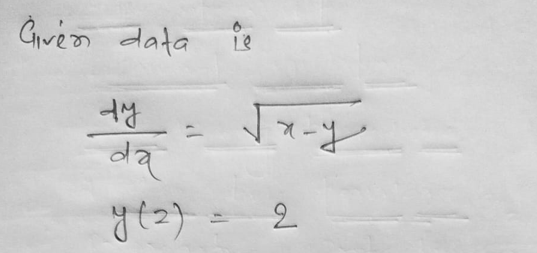 Given data is
dy/dx = √x-y
y(2) = 2